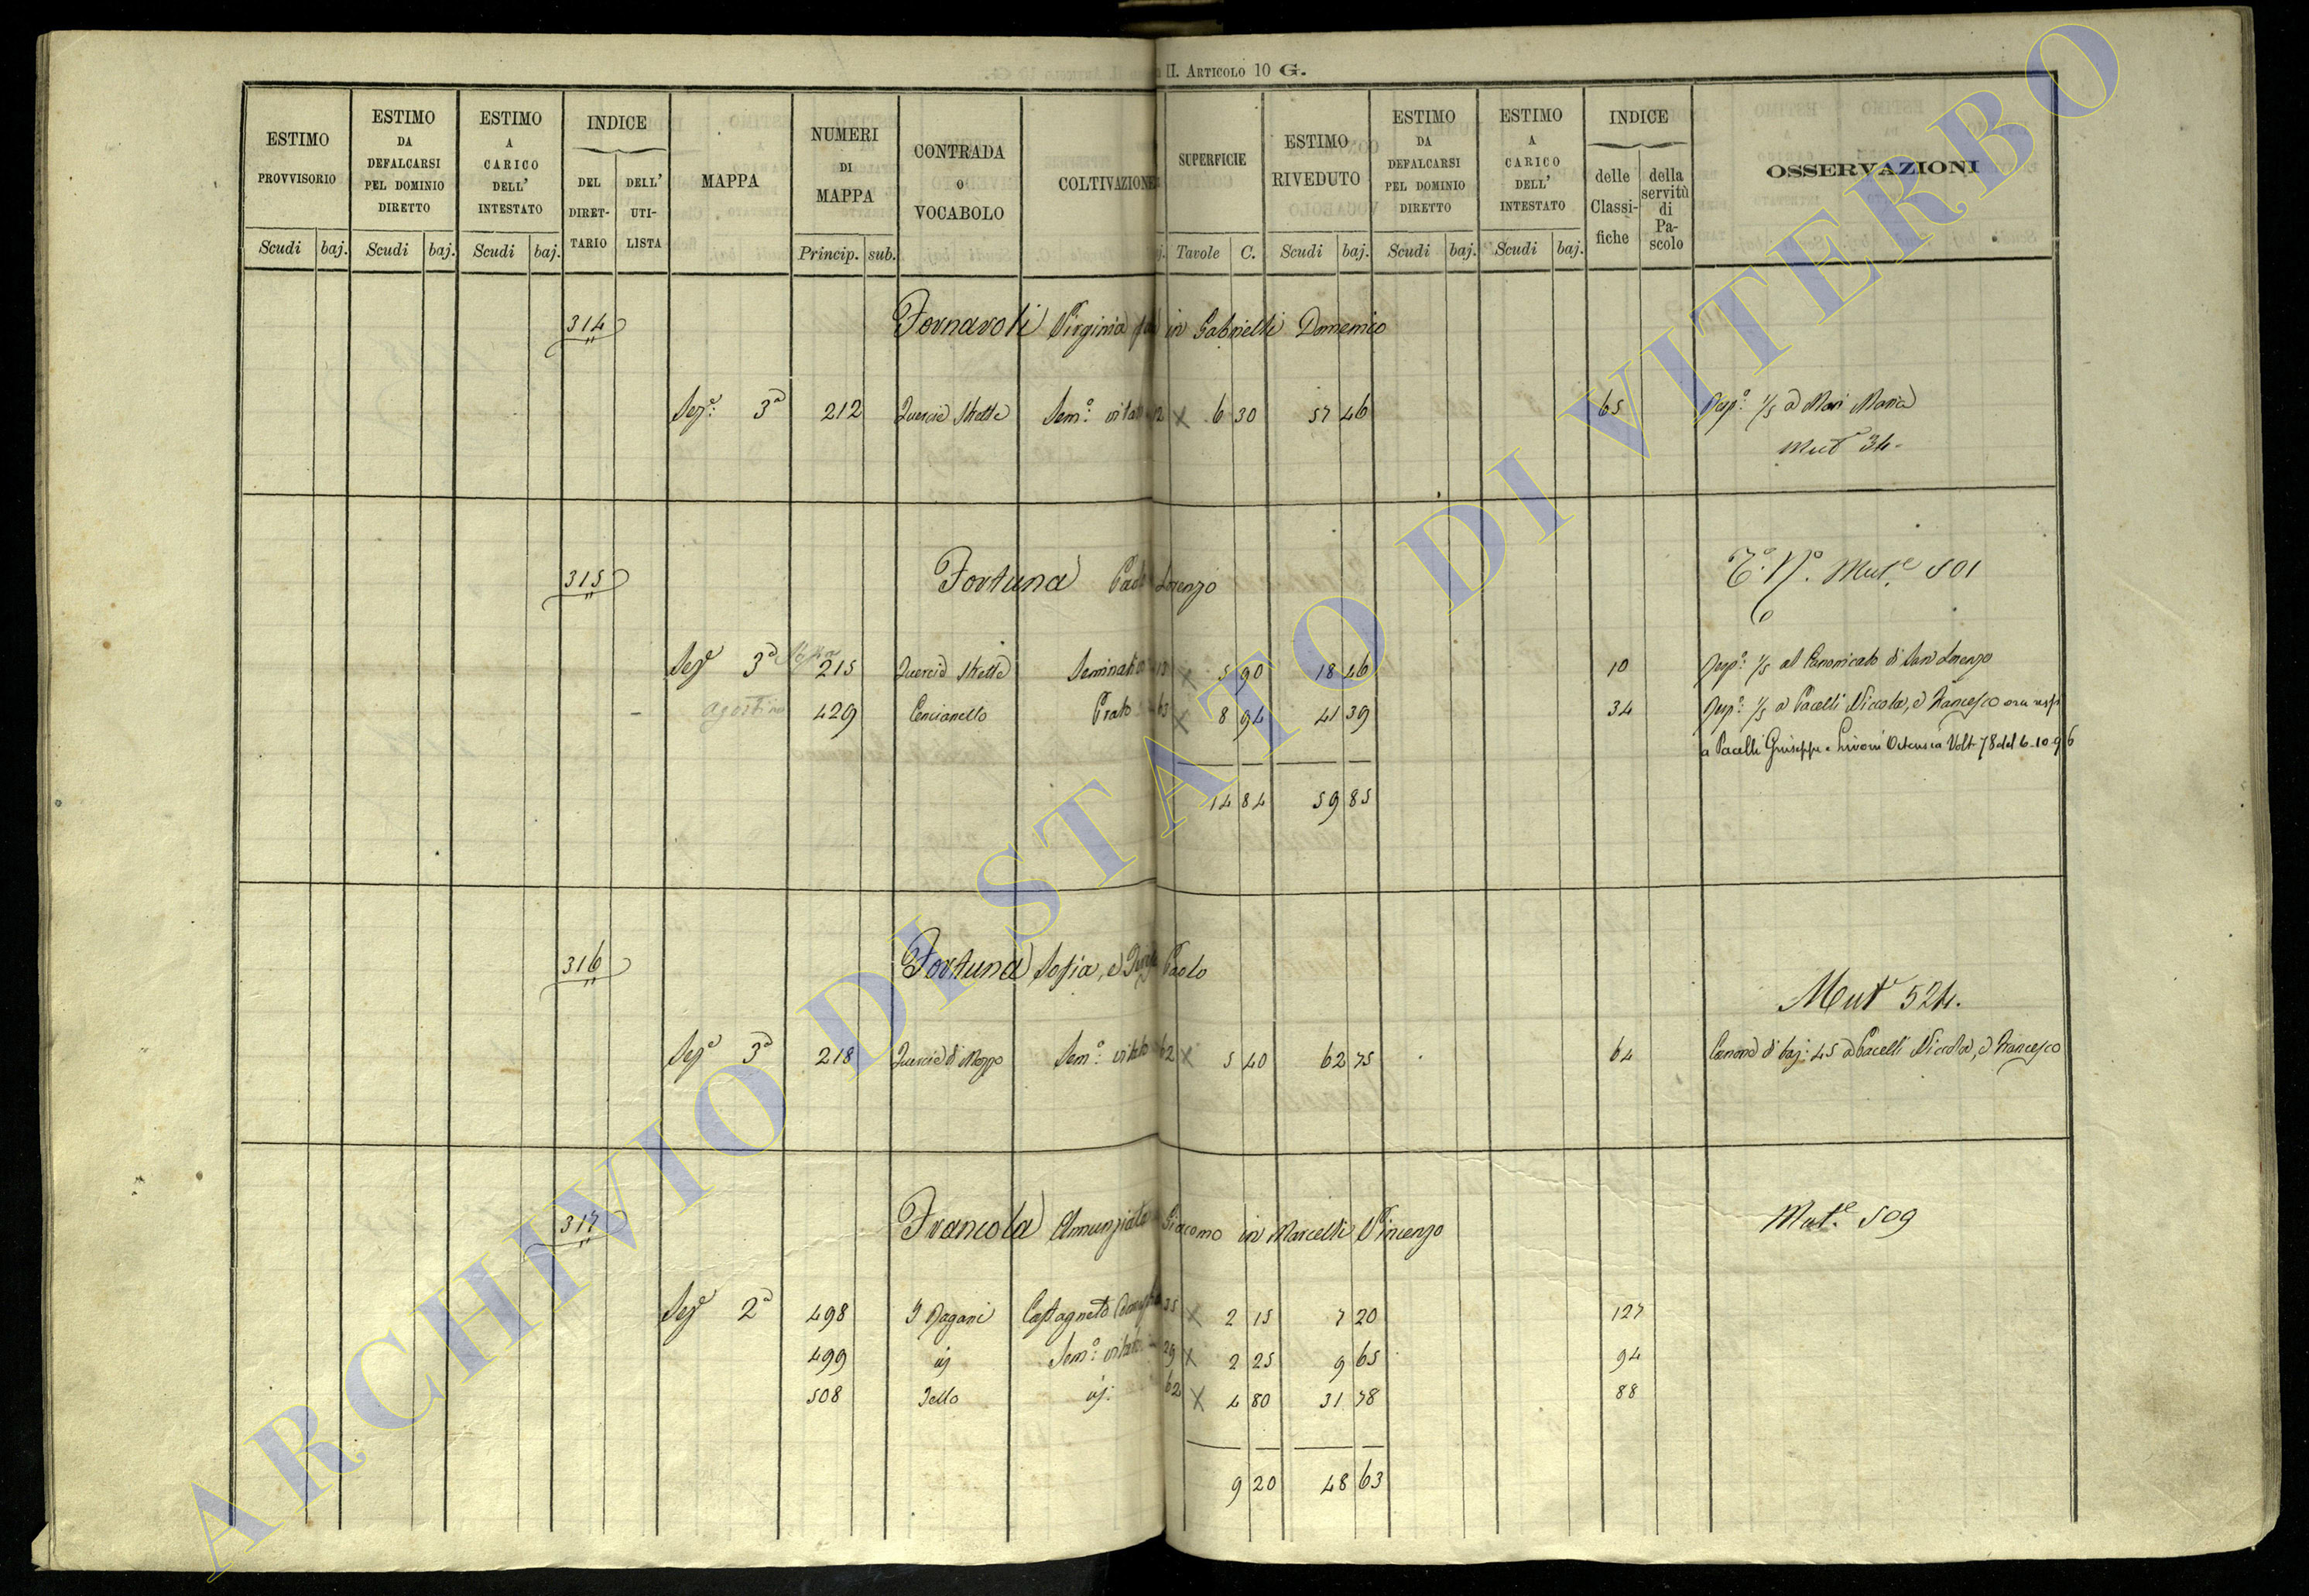 II. ARTICOLO 10 G.
ESTIMO PROVVISORIO
ESTIMO DA DEFALCARSI PEL DOMINIO DIRETTO
ESTIMO A CARICO DELL' INTESTATO
INDICE
DEL DIRET-TARIO
DELL' UTI-LISTA
MAPPA
NUMERI DI MAPPA
CONTRADA O VOCABOLO
COLTIVAZIONE
SUPERFICIE
ESTIMO RIVEDUTO
ESTIMO DA DEFALCARSI PEL DOMINIO DIRETTO
ESTIMO A CARICO DELL' INTESTATO
INDICE
delle Classi-fiche
della servitù di Pa-scolo
OSSERVAZIONI
Scudi baj. Scudi baj. Scudi baj. Princip. sub. Tavole C. Scudi baj. Scudi baj. Scudi baj.
314 Fornaroli Virginia in Gabrielli Domenico
Sez.e 3a 212 Quercia Strette Sem.o vitato X 6 30 57 46 65 Resp.o 1/5 a Mari Maria
Mut 34.
315 Fortuna Lorenzo
T.o N.o Mut.e 501
Sez.e 3a 215 Quercia Strette Seminativo X 5 90 18 46 10 Resp.o 1/5 al Canonicato di San Lorenzo
agostino 429 Cencianello Prato X 8 94 41 39 34 Resp.o 1/5 a Pacelli Niccola, e Francesco ora resp
a Pacelli Giuseppe e Ortensia Volt. 78 del 6-10-96
14 84 59 85
316 Fortuna Sofia, e Paolo
Mut 524.
Sez.e 3a 218 Quercia di Mezzo Sem.o vitato 62 X 5 40 62 75 64 Canone di baj: 45 a Pacelli Niccola, e Francesco
317 Francola Annunziata Giacomo in Marcelli Vincenzo
Mut.e 509
Sez.e 2a 498 I Pagani Castagneto 35 X 2 15 7 20 127
499 id Sem.o vitato 29 X 2 25 9 65 94
508 id. 62 X 4 80 31 78 88
9 20 48 63
ARCHIVIO DI STATO DI VITERBO